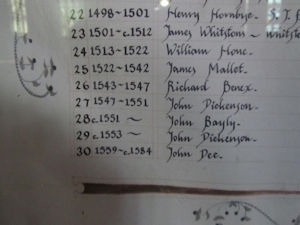 22 1498~1501 Henry Hornbye -
23 1501~c.1512 James Whitstons ~
24 1513~1522 William Hone -
25 1522~1542 James Mallet -
26 1543~1547 Richard Benex -
27 1547~1551 John Dickenson -
28 c.1551 ~ John Bayly -
29 c.1553 ~ John Dickenson -
30 1559~c.1584 John Dee -